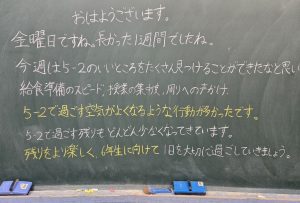 おはようございます。
金曜日ですね。長かった1週間でしたね。
今週は5-2のいいところをたくさん見つけることができたなと思い
給食準備のスピード、授業の集中、周りへの声かけ、
5-2で過ごす空気がよくなるような行動が多かったです。
5-2で過ごす残りもどんどん少なくなってきています。
残りをより楽しく、6年生に向けて1日を大切に過ごしていきましょう。